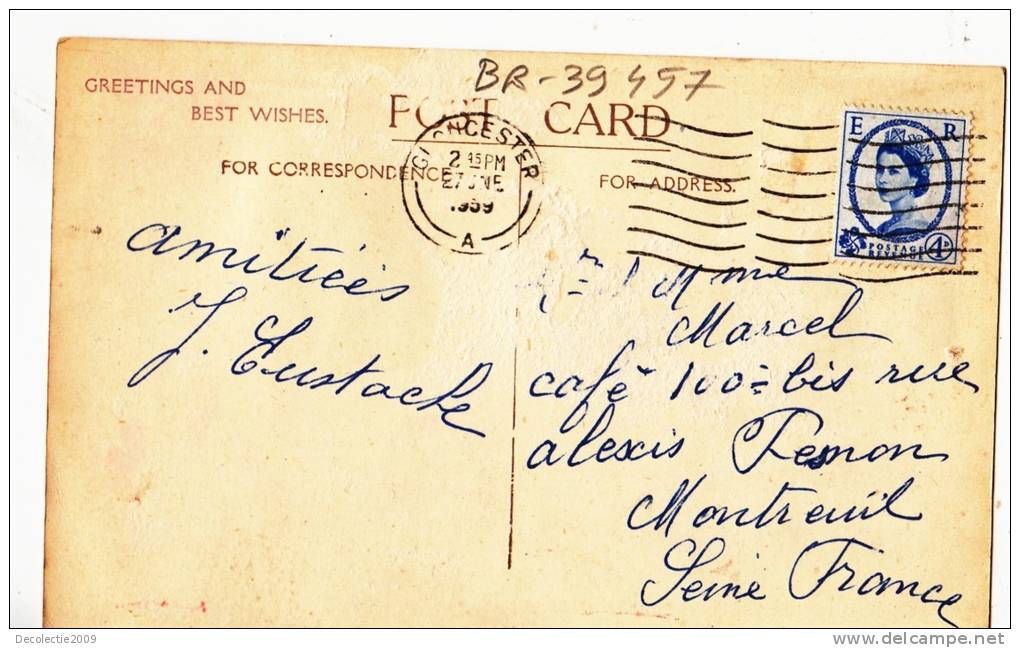 BR-39457
GREETINGS AND
BEST WISHES.
POST CARD
FOR CORRESPONDENCE
FOR ADDRESS.
GLOUCESTER
2 45 PM
27 JNE
1959
A
E R
POSTAGE
REVENUE
4D
amitiées
J. Eustache
Mme
Marcel
café 100 = bis rue
alexis Pesnon
Montreuil
Seine France
Decolectie2009
www.delcampe.net